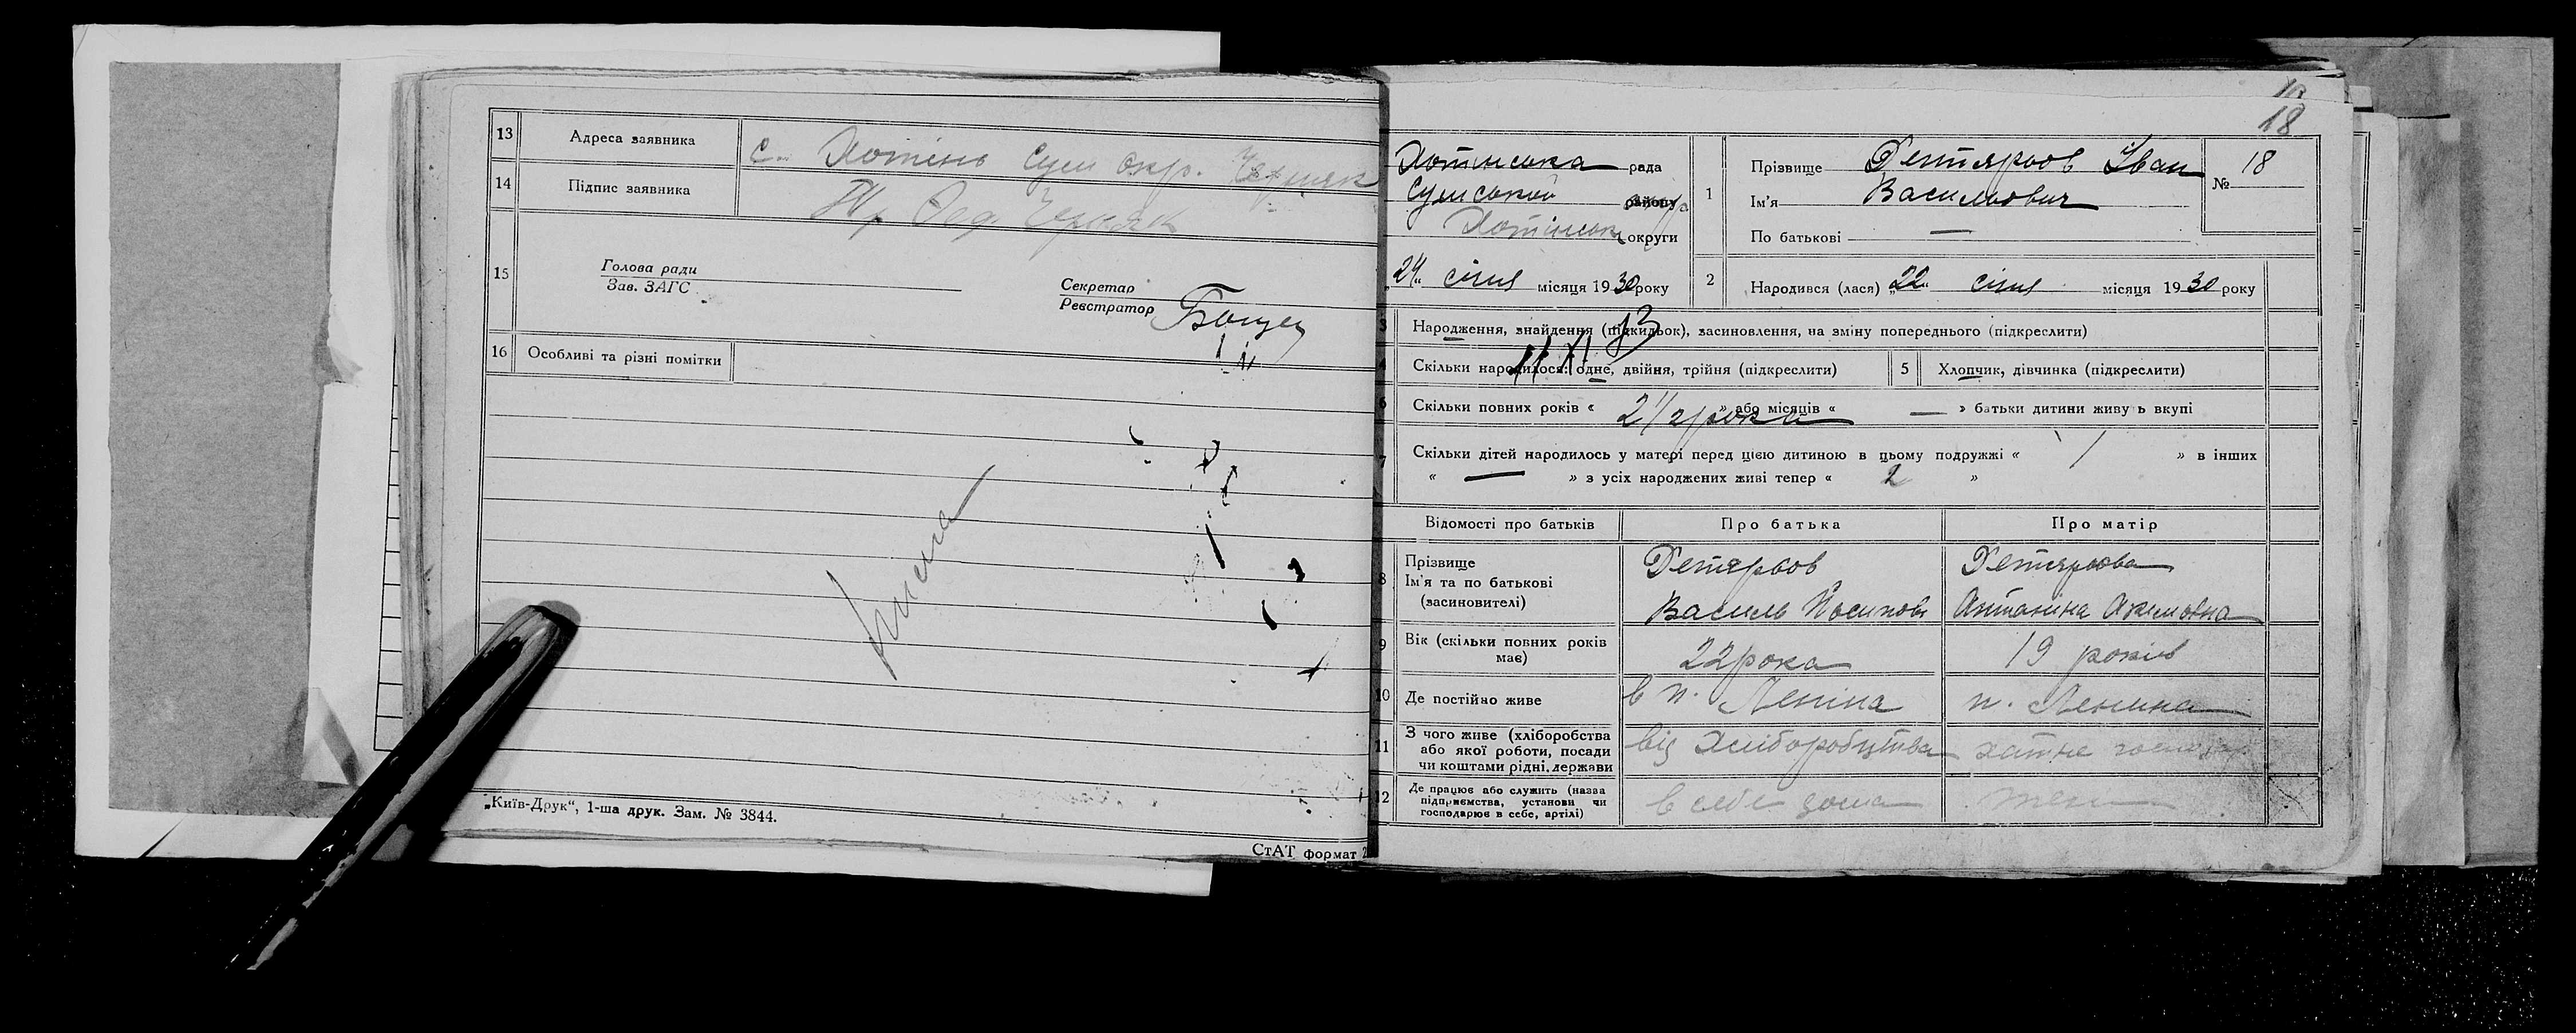 13 Адреса заявника с. Хотінь Сум окр. Черняк
14 Підпис заявника Черняк
15 Голова ради
Зав. ЗАГС
Секретар
Реєстратор
16 Особливі та різні помітки
„Київ-Друк“, 1-ша друк. Зам. № 3844.
СтАТ формат 2
18
Хотінська рада
Сумської району
Хотінськ округи
„24“ січня місяця 1930 року
1 Прізвище Дегтярьов Іван
Ім'я Васильович
По батькові —
№ 18
2 Народився (лася) „22“ січня місяця 1930 року
3 Народження, знайдення (підкидьок), засиновлення, на зміну попереднього (підкреслити)
13
11 XI
4 Скільки народилося: одне, двійня, трійня (підкреслити)
5 Хлопчик, дівчинка (підкреслити)
6 Скільки повних років « 2 1/2 рока » або місяців « — » батьки дитини живуть вкупі
7 Скільки дітей народилось у матері перед цією дитиною в цьому подружжі « 1 » в інших
« — » з усіх народжених живі тепер « 2 »
Відомості про батьків Про батька Про матір
8 Прізвище
Ім'я та по батькові
(засиновителі)
Дегтярьов
Василь Йосипов
Дегтярьова
Антоніна Акимовна
9 Вік (скільки повних років має) 22 рока 19 років
10 Де постійно живе в п. Леніна п. Ленина
11 З чого живе (хліборобства
або якої роботи, посади
чи коштами рідні, держави
від хліборобства хатне господар
12 Де працює або служить (назва
підприємства, установи чи
господарює в себе, артілі)
в себе дома